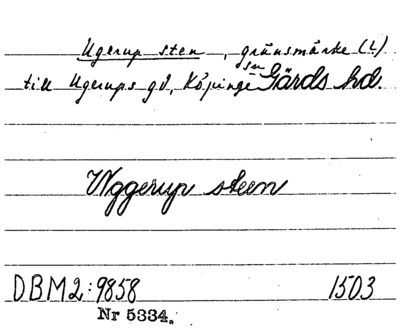 Ugerup sten, gränsmärke (L)
till Ugerups gd, Köpinge sn Gärds hd.
Vggerup steen
DBM2:9858 1503
Nr 5334.